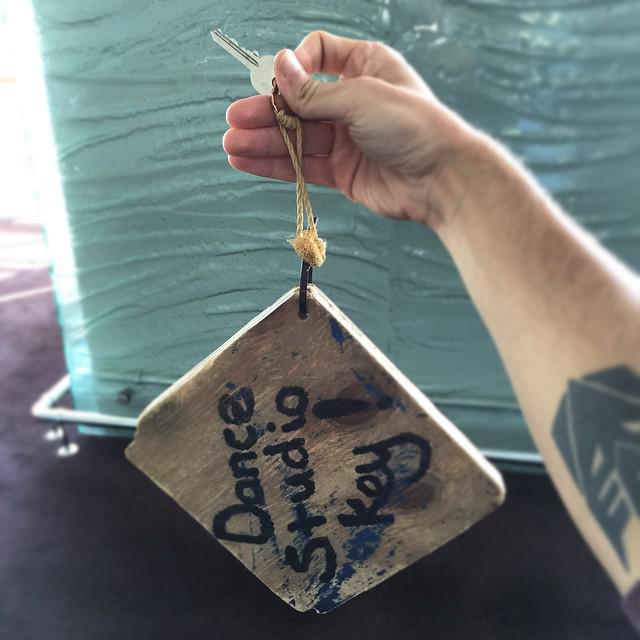 Dance
Studio
Key!